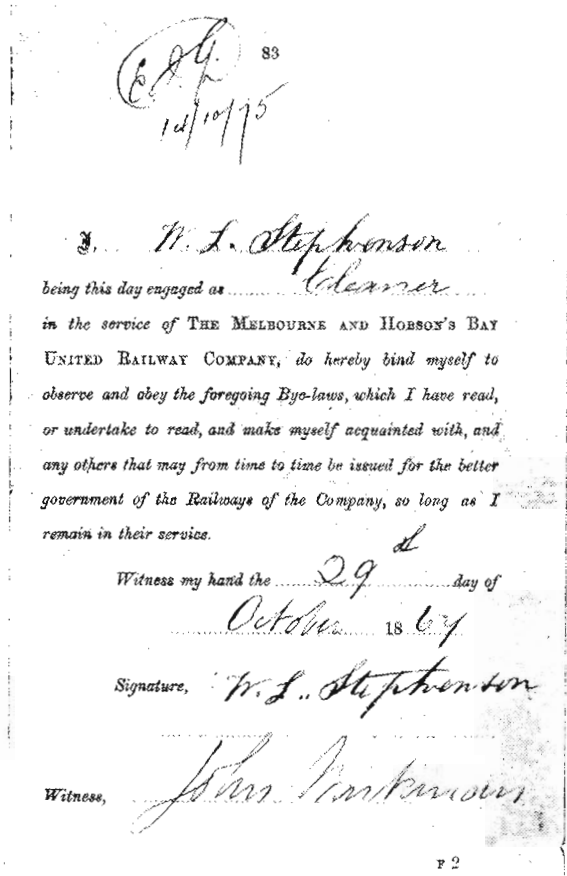 83
14/10/75
I, W. L. Stephenson
being this day engaged as Cleaner
in the service of THE MELBOURNE AND HOBSON'S BAY
UNITED RAILWAY COMPANY, do hereby bind myself to
observe and obey the foregoing Bye-laws, which I have read,
or undertake to read, and make myself acquainted with, and
any others that may from time to time be issued for the better
government of the Railways of the Company, so long as I
remain in their service.
Witness my hand the 29 day of
October 18
Signature, W. L. Stephenson
Witness, John
F 2